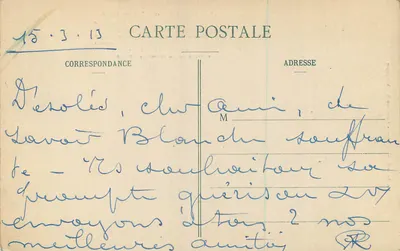 15.3.13
CARTE POSTALE
CORRESPONDANCE
ADRESSE
M
Désolée, cher Ami, de
savoir Blanche souffran
te - Ns souhaitons sa
prompte guérison & vs
envoyons à tous 2 nos
meilleures amitiés